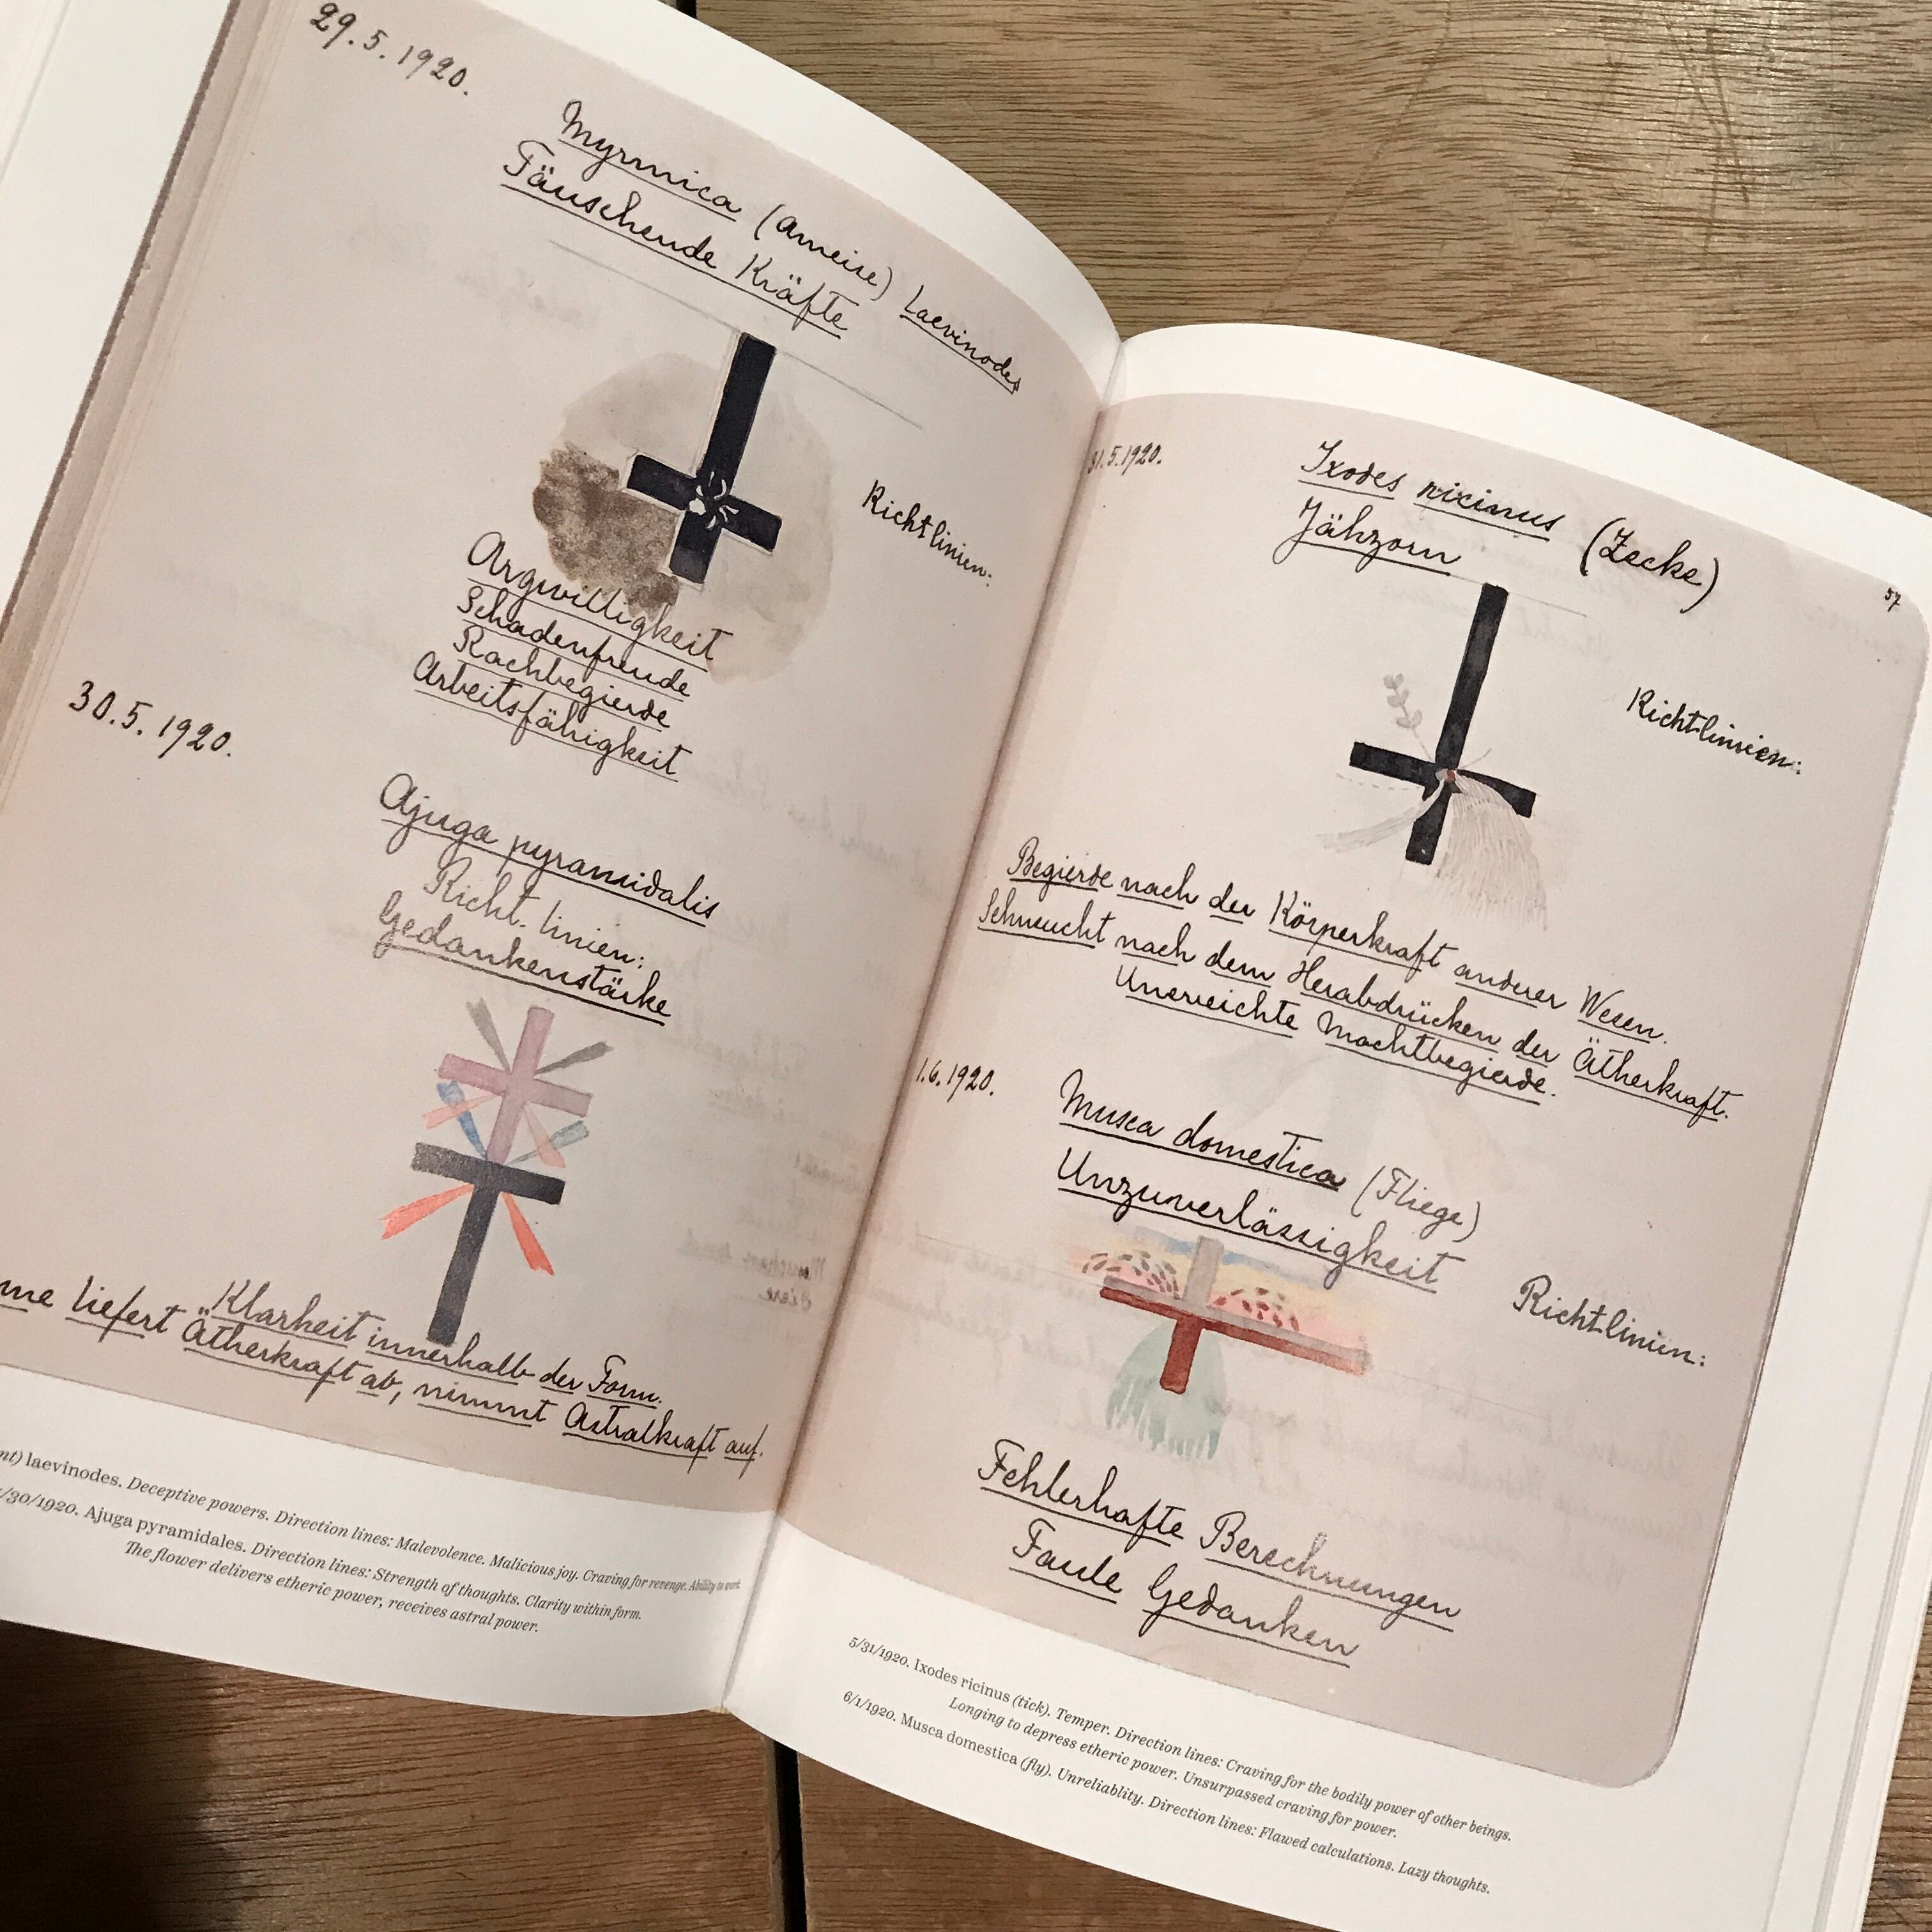 29.5.1920.
Myrmica (Ameise) Laevinodes
Täuschende Kräfte
Richtlinien:
Argwilligkeit
Schadenfreude
Rachbegierde
Arbeitsfähigkeit
30.5.1920.
Ajuga pyramidalis
Richt. linien:
Gedankenstärke
Klarheit innerhalb der Form.
me liefert Ätherkraft ab, nimmt Astralkraft auf.
nt) laevinodes. Deceptive powers. Direction lines: Malevolence. Malicious joy. Craving for revenge. Ability to work.
/30/1920. Ajuga pyramidales. Direction lines: Strength of thoughts. Clarity within form.
The flower delivers etheric power, receives astral power.
57
31.5.1920.
Ixodes rixinus (Zecke)
Jähzorn
Richtlinien:
Begierde nach der Körperkraft anderer Wesen.
Sehnsucht nach dem Herabdrücken der Ätherkraft.
Unerreichte Machtbegierde.
1.6.1920.
Musca domestica (Fliege)
Unzuverlässigkeit
Richtlinien:
Fehlerhafte Berechnungen
Faule Gedanken
5/31/1920. Ixodes ricinus (tick). Temper. Direction lines: Craving for the bodily power of other beings.
Longing to depress etheric power. Unsurpassed craving for power.
6/1/1920. Musca domestica (fly). Unreliablity. Direction lines: Flawed calculations. Lazy thoughts.